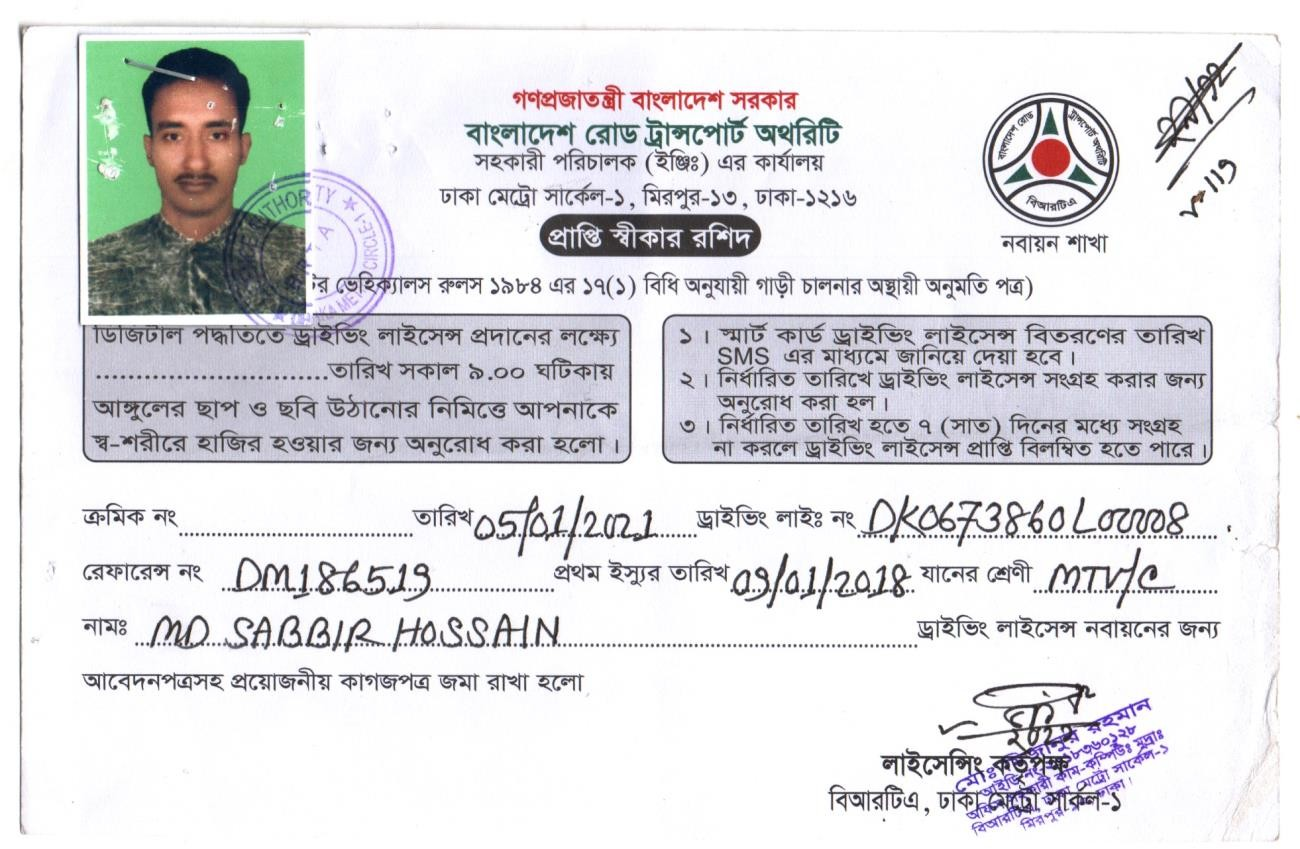 গণপ্রজাতন্ত্রী বাংলাদেশ সরকার
বাংলাদেশ রোড ট্রান্সপোর্ট অথরিটি
সহকারী পরিচালক (ইঞ্জিঃ) এর কার্যালয়
ঢাকা মেট্রো সার্কেল-১, মিরপুর-১৩, ঢাকা-১২১৬
প্রাপ্তি স্বীকার রশিদ
বাংলাদেশ রোড ট্রান্সপোর্ট অথরিটি
বিআরটিএ
নবায়ন শাখা
ভেহিক্যালস রুলস ১৯৮৪ এর ১৭(১) বিধি অনুযায়ী গাড়ী চালনার অস্থায়ী অনুমতি পত্র)
ডিজিটাল পদ্ধতিতে ড্রাইভিং লাইসেন্স প্রদানের লক্ষ্যে
..............................তারিখ সকাল ৯.০০ ঘটিকায়
আঙ্গুলের ছাপ ও ছবি উঠানোর নিমিত্তে আপনাকে
স্ব-শরীরে হাজির হওয়ার জন্য অনুরোধ করা হলো।
১। স্মার্ট কার্ড ড্রাইভিং লাইসেন্স বিতরণের তারিখ
SMS এর মাধ্যমে জানিয়ে দেয়া হবে।
২। নির্ধারিত তারিখে ড্রাইভিং লাইসেন্স সংগ্রহ করার জন্য
অনুরোধ করা হল।
৩। নির্ধারিত তারিখ হতে ৭ (সাত) দিনের মধ্যে সংগ্রহ
না করলে ড্রাইভিং লাইসেন্স প্রাপ্তি বিলম্বিত হতে পারে।
ক্রমিক নং ..............................তারিখ 05/01/2021 ড্রাইভিং লাইঃ নং DK0673860L00008
রেফারেন্স নং DM186519 প্রথম ইস্যুর তারিখ 09/01/2018 যানের শ্রেণী MTV/C
নামঃ MD SABBIR HOSSAIN ড্রাইভিং লাইসেন্স নবায়নের জন্য
আবেদনপত্রসহ প্রয়োজনীয় কাগজপত্র জমা রাখা হলো
লাইসেন্সিং কর্তৃপক্ষ
বিআরটিএ, ঢাকা মেট্রো সার্কেল-১